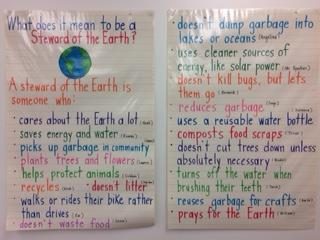 What does it mean to be a
Steward of the Earth?
A steward of the Earth is
someone who:
· cares about the Earth a lot
· saves energy and water
· picks up garbage in community
· plants trees and flowers
· helps protect animals
· recycles · doesn't litter
· walks or rides their bike rather
than drives
· doesn't waste food
· doesn't dump garbage into
lakes or oceans
· uses cleaner sources of
energy, like solar power
· doesn't kill bugs, but lets
them go
· reduces garbage
· uses a reusable water bottle
· composts food scraps
· doesn't cut trees down unless
absolutely necessary
· turns off the water when
brushing their teeth
· reuses garbage for crafts
· prays for the Earth